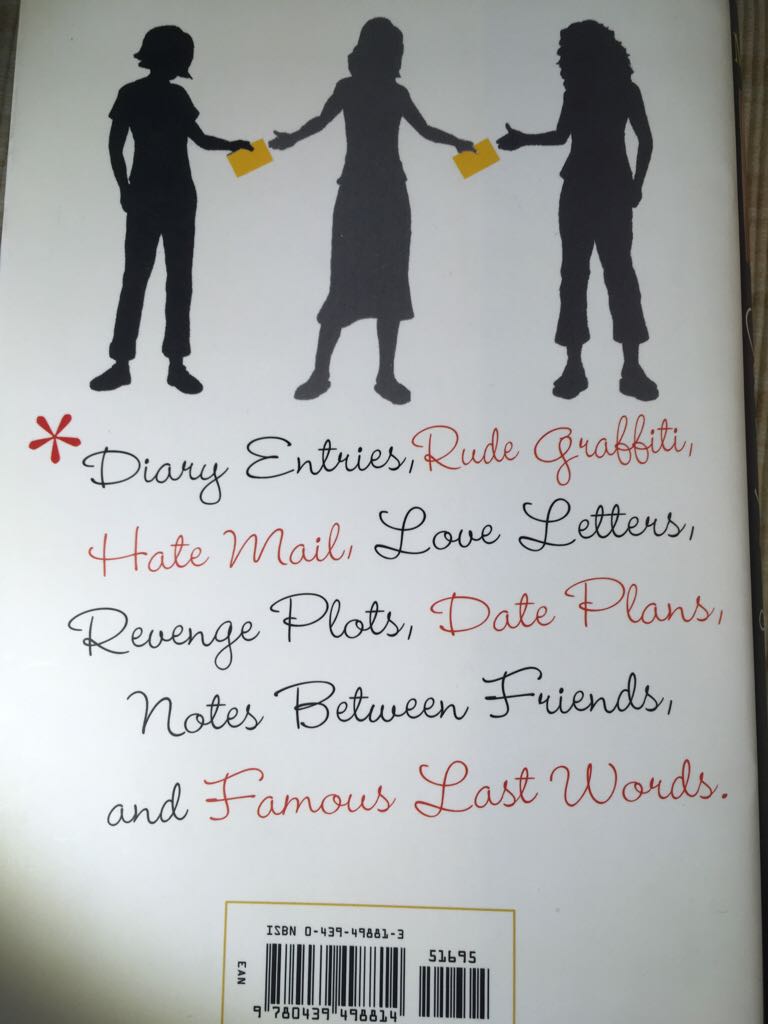 *Diary Entries, Rude Graffiti,
Hate Mail, Love Letters,
Revenge Plots, Date Plans,
Notes Between Friends,
and Famous Last Words.
ISBN 0-439-49881-3
51695
EAN
9 780439 498814